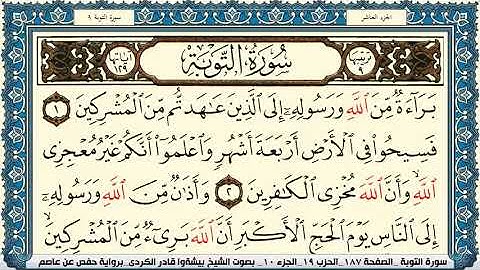 الجزء العاشر
سورة التوبة ٩
ترتيبها ٩
سُورَةُ التَّوْبَةِ
آياتها ١٢٩
بَرَآءَةٌ مِّنَ ٱللَّهِ وَرَسُولِهِۦٓ إِلَى ٱلَّذِينَ عَٰهَدتُّم مِّنَ ٱلْمُشْرِكِينَ ١
فَسِيحُوا۟ فِى ٱلْأَرْضِ أَرْبَعَةَ أَشْهُرٍ وَٱعْلَمُوٓا۟ أَنَّكُمْ غَيْرُ مُعْجِزِى
ٱللَّهِ ۙ وَأَنَّ ٱللَّهَ مُخْزِى ٱلْكَٰفِرِينَ ٢ وَأَذَٰنٌ مِّنَ ٱللَّهِ وَرَسُولِهِۦٓ
إِلَى ٱلنَّاسِ يَوْمَ ٱلْحَجِّ ٱلْأَكْبَرِ أَنَّ ٱللَّهَ بَرِىٓءٌ مِّنَ ٱلْمُشْرِكِينَ ۙ
سورة التوبة _ الصفحة ١٨٧ _ الحزب ١٩ _ الجزء ١٠ _ بصوت الشيخ بيشةوا قادر الكردى _ برواية حفص عن عاصم